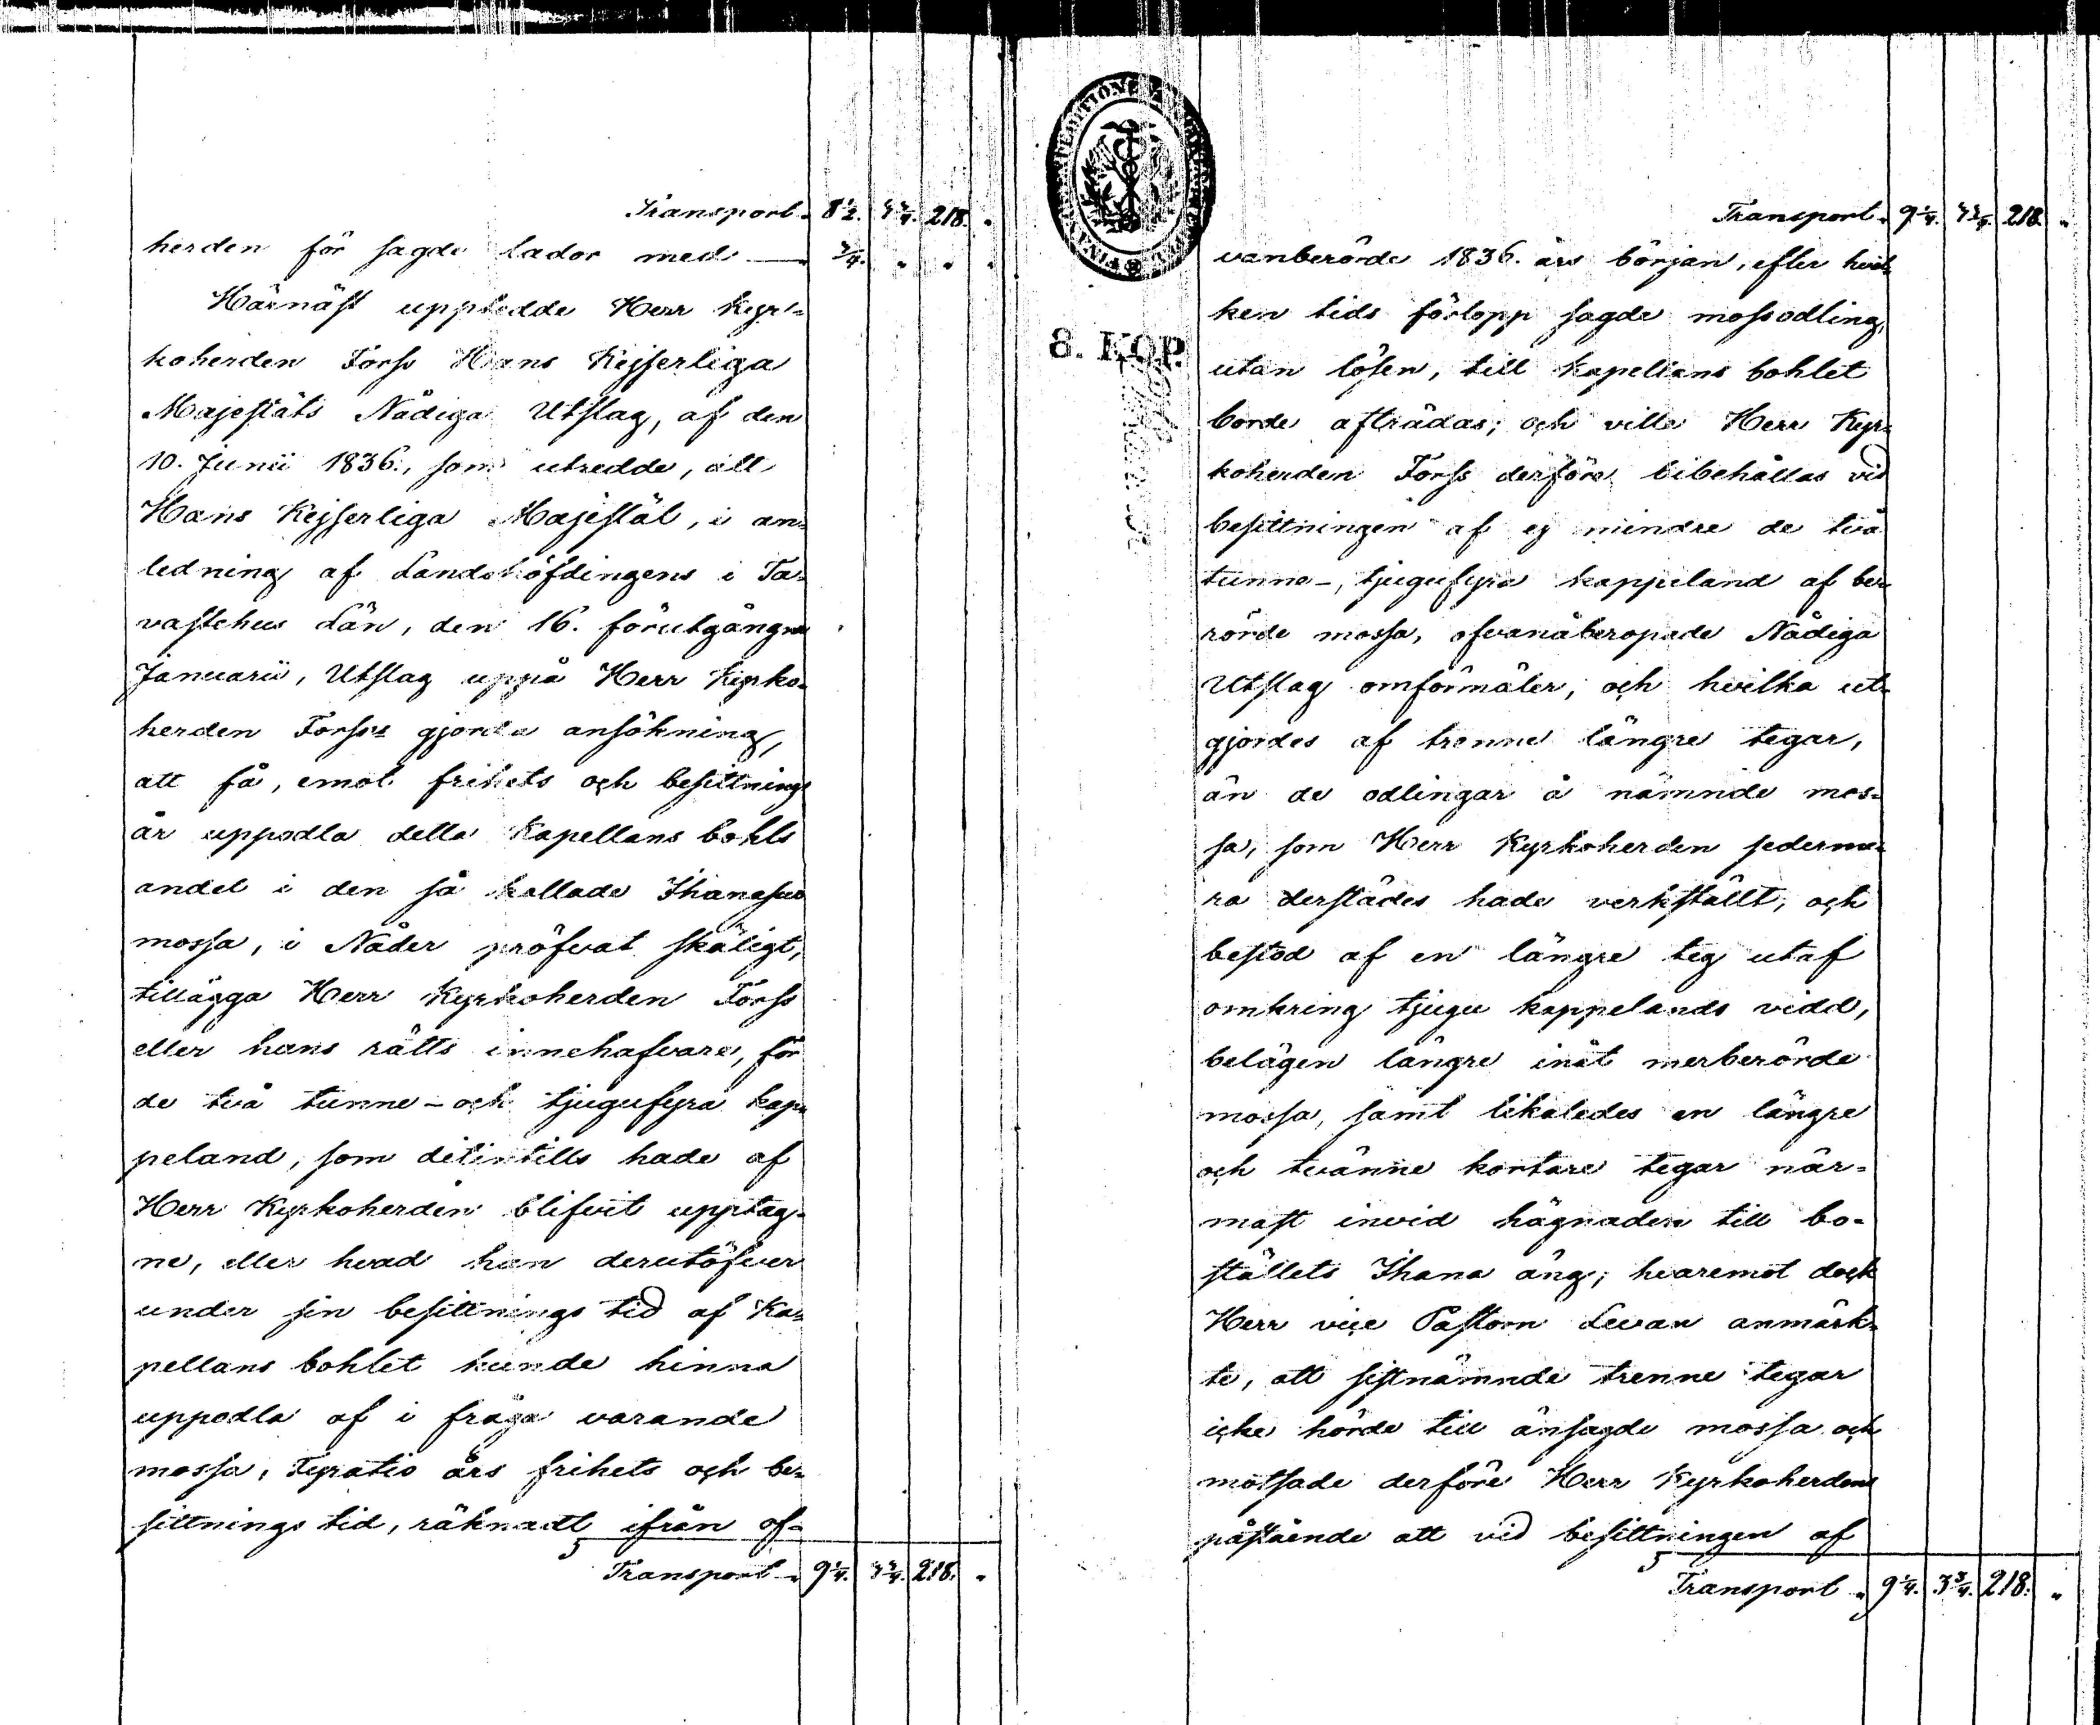 Transport " 8 1/2. 3 3/4. 218. "
herden för sagde lador med — 3/4. " " "
Härnäst uppledde Herr Kyr-
koherden Forss Hans Kejserliga
Majestäts Nådiga Utslag, af den
10. Junii 1836., som utredde, att
Hans Kejserliga Majestät, i an-
ledning af Landshöfdingens i Ta-
vastehus Län, den 16. förutgångne
Januarii, Utslag uppå Herr Kyrko-
herden Forss's gjorda ansökning,
att få, emot frihets och besittnings
år uppodla detta Kapellans bohls
andel i den så kallade Ihanasuo
mossa, i Nåder pröfvat skäligt,
tillägga Herr Kyrkoherden Forss
eller hans rätts innehafvare, för
de två tunne- och tjugufyra kap-
peland, som ditintills hade af
Herr Kyrkoherden blifvit upptag-
ne, eller hvad han derutöfver
under sin besittnings tid af Ka-
pellans bohlet kunde hinna
uppodla af i fråga varande
mossa, Fyratio års frihets och be-
sittnings tid, räknadt ifrån of-
Transport " 9 1/4. 3 3/4. 218. "
8. KOP.
Transport " 9 1/4. 3 3/4. 218. "
vanberörde 1836. års början, efter hvil-
ken tids förlopp sagde mossodling,
utan lösen, till kapellans bohlet
borde afträdas; och ville Herr Kyr-
koherden Forss derföre bibehållas vid
besittningen af ej mindre de två
tunne-, tjugufyra kappeland af be-
rörde mossa, ofvanåberopade Nådiga
Utslag omförmäler, och hvilka ut-
gjordes af trenne längre tegar,
än de odlingar å nämnde mos-
sa, som Herr Kyrkoherden sederme-
ra derstädes hade verkställt, och
bestod af en längre teg utaf
omkring tjugu kappelands vidd,
belägen längre inåt merberörde
mossa, samt likaledes en längre
och tvänne kortare tegar när-
mast invid hägnaden till bo-
ställets Ihana äng; hvaremot dock
Herr vice Pastorn Levan anmärk-
te, att sistnämnde trenne tegar
icke hörde till ansagde mossa och
motsade derföre Herr Kyrkoherdens
påstående att vid besittningen af
Transport " 9 1/4. 3 3/4. 218. "